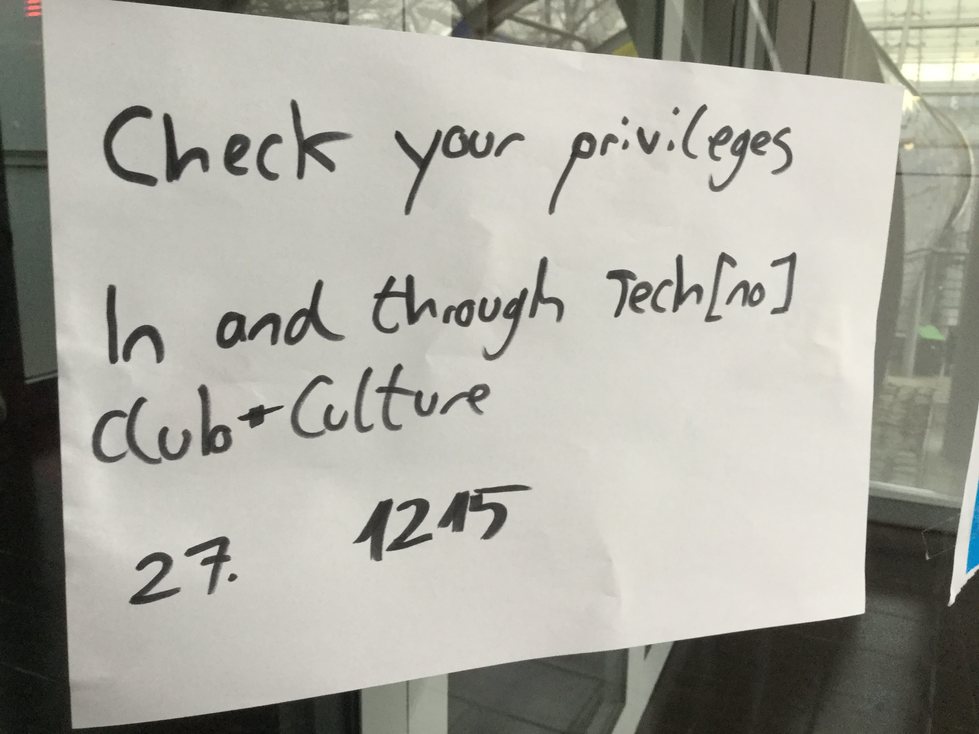 Check your privileges
In and through Tech[no]
Club+Culture
27. 1215